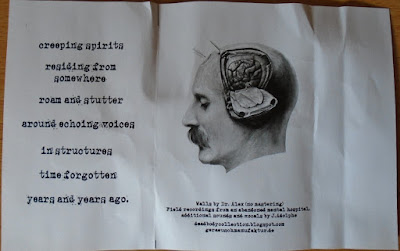 creeping spirits
residing from
somewhere
roam and stutter
around echoing voices
in structures
time forgotten
years and years ago.
Walls by Dr. Alex (no mastering)
Field recordings from an abandoned mental hospital,
additional sounds and vocals by J.Adolphe
deadbodycollection.blogspot.com
gaerenuohmanufaktur.de